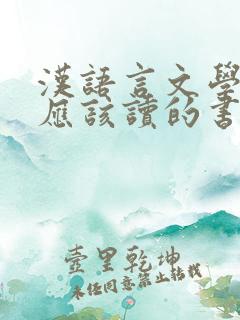 漢語言文學
應該讀的書
壺里乾坤
未經同意禁止轉載